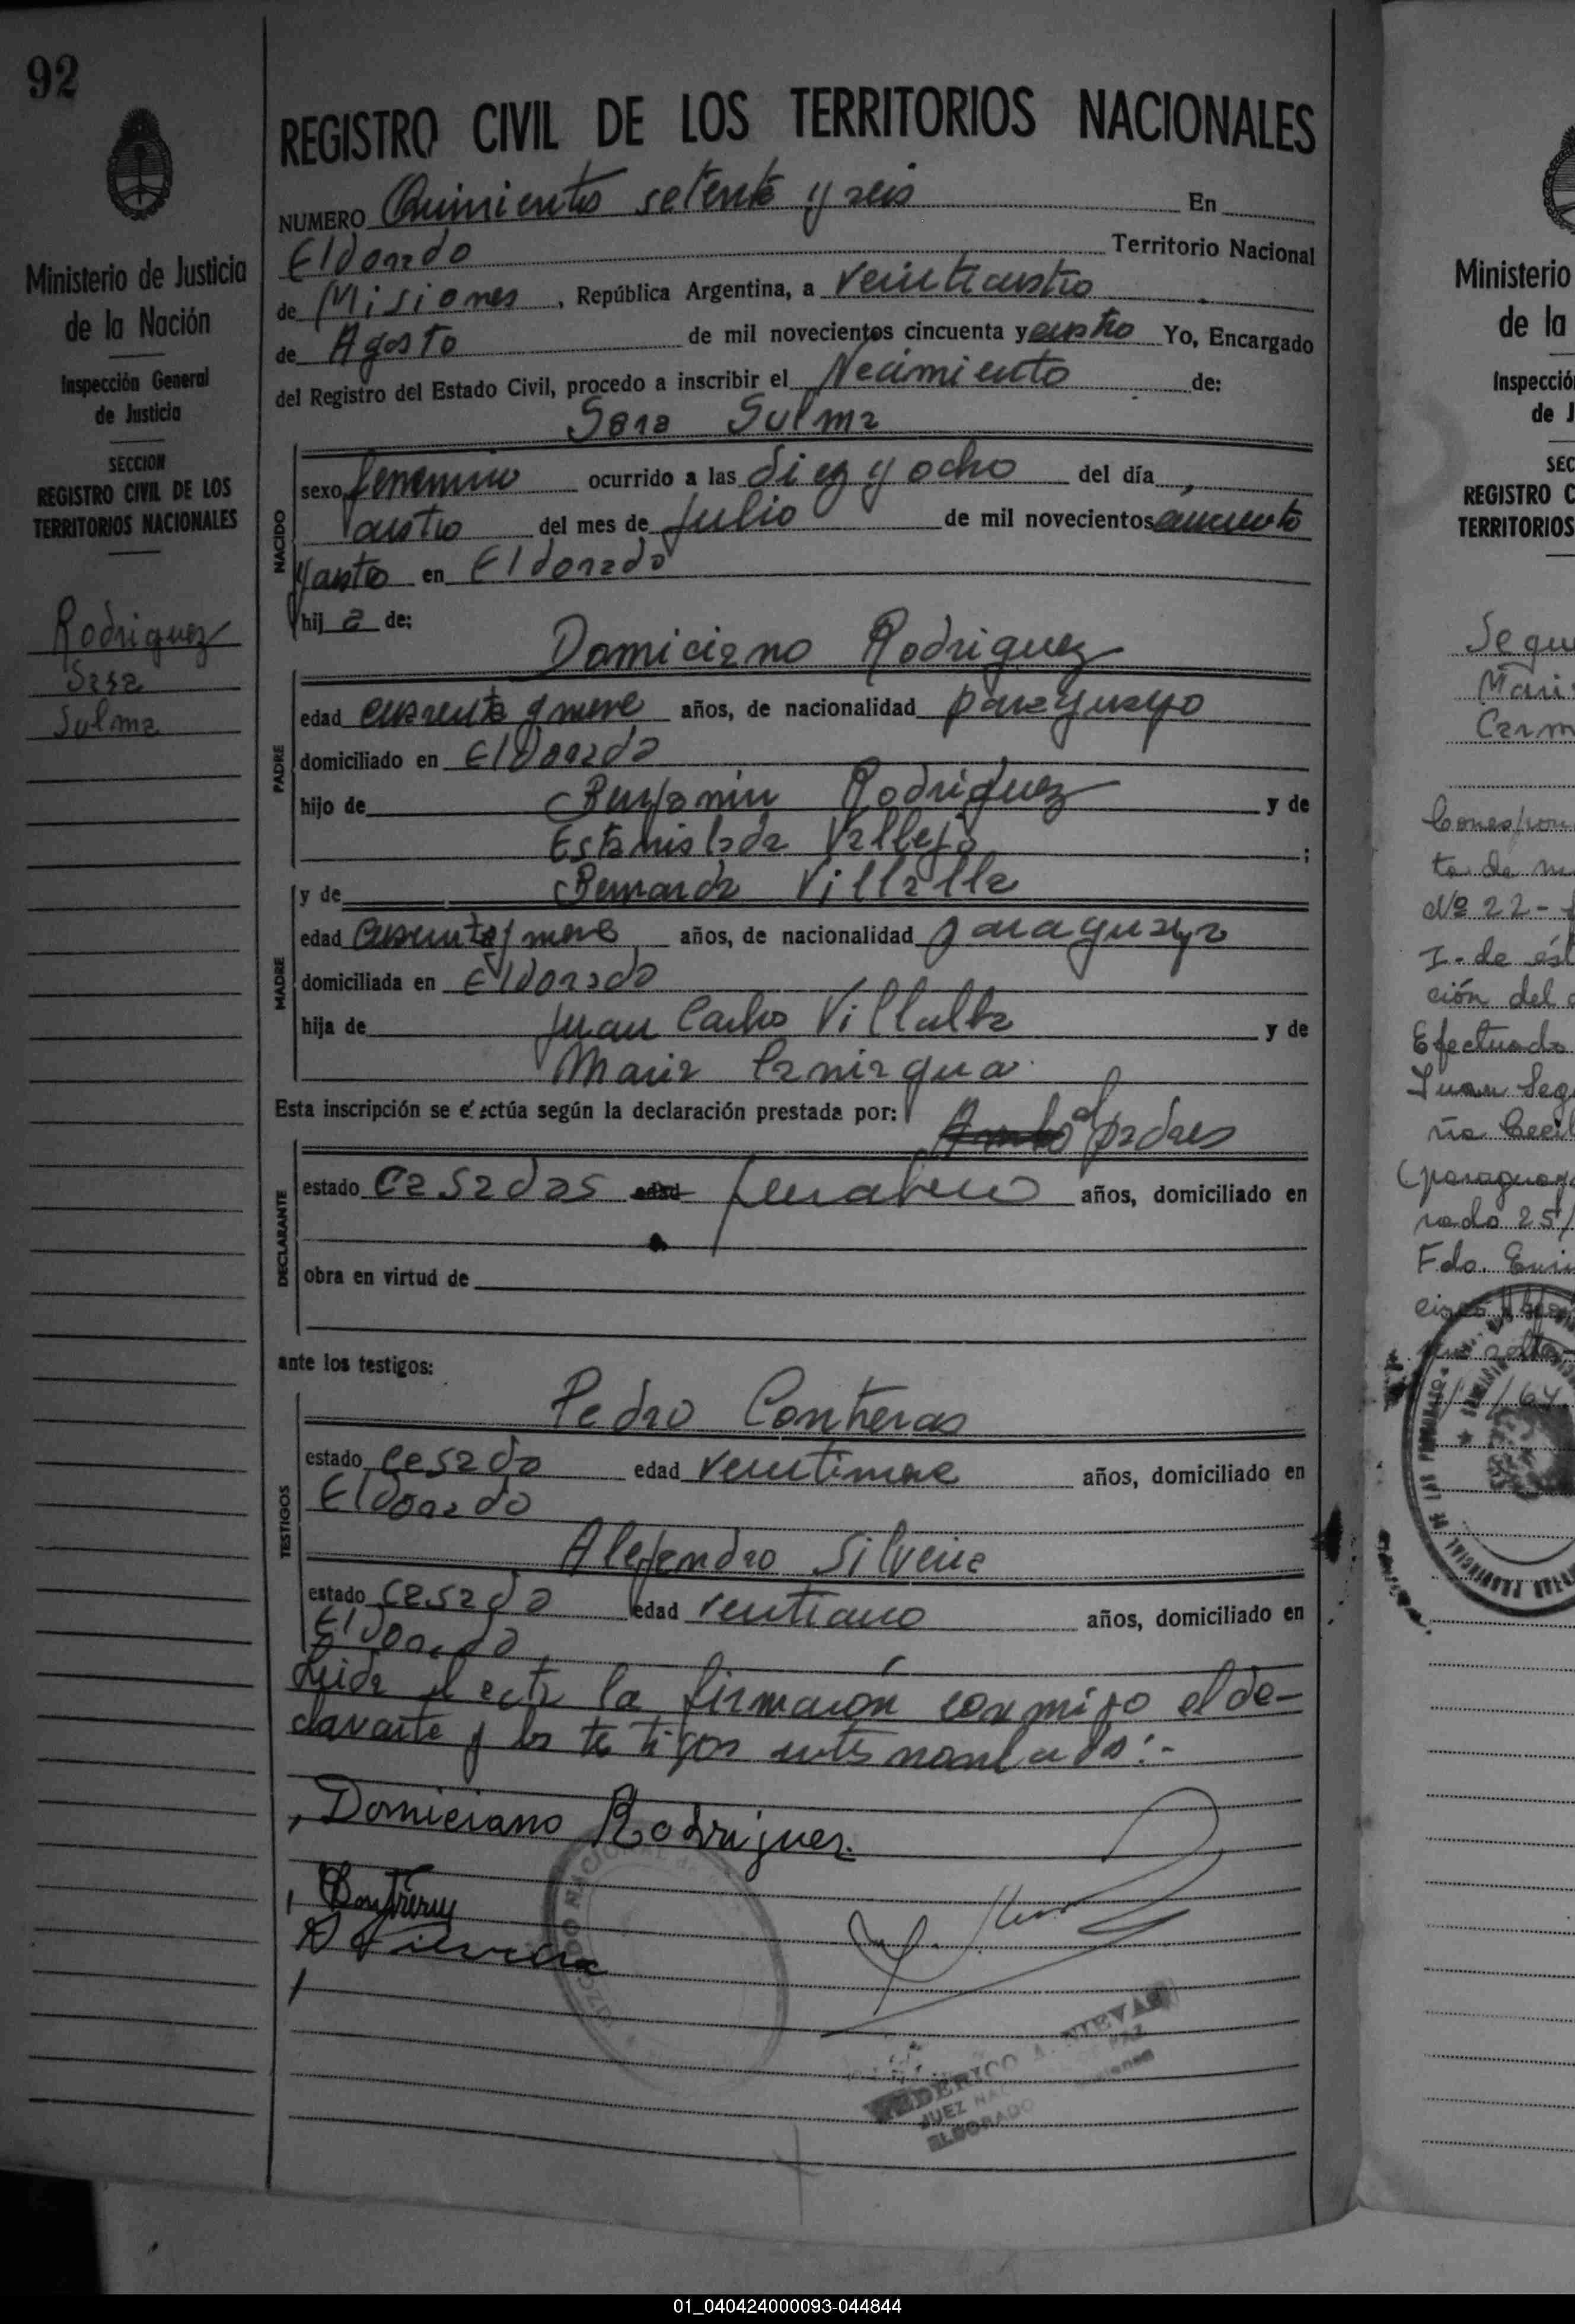 92
Ministerio de Justicia
de la Nación
Inspección General
de Justicia
SECCION
REGISTRO CIVIL DE LOS
TERRITORIOS NACIONALES
Rodriguez
Sara
Sulma
REGISTRO CIVIL DE LOS TERRITORIOS NACIONALES
NUMERO Quinientos setenta y seis En
Eldorado Territorio Nacional
de Misiones, República Argentina, a veinticuatro
de Agosto de mil novecientos cincuenta y cuatro Yo, Encargado
del Registro del Estado Civil, procedo a inscribir el Nacimiento de:
Sara Sulma
NACIDO
sexo femenino ocurrido a las diez y ocho del día
cuatro del mes de Julio de mil novecientos cincuenta
y cuatro en Eldorado
hij a de:
Domiciano Rodriguez
PADRE
edad cuarenta y nueve años, de nacionalidad paraguayo
domiciliado en Eldorado
hijo de Benjamin Rodriguez y de
Estanislada Vallejo ;
y de Bernarda Villalba
MADRE
edad cuarenta y nueve años, de nacionalidad paraguaya
domiciliada en Eldorado
hija de Juan Carlos Villalba y de
Maria
Esta inscripción se efectúa según la declaración prestada por:
padres
DECLARANTE
estado casados edad años, domiciliado en
obra en virtud de
ante los testigos:
TESTIGOS
Pedro Contreras
estado casado edad veintinueve años, domiciliado en
Eldorado
Alejandro Silveira
estado casado edad años, domiciliado en
Eldorado
Leida el acta la firmaron conmigo el de-
clarante y los testigos antes nombrados.-
Domiciano Rodriguez.
Contreras
FEDERICO A. NIEVAS
JUEZ NAC PAZ
ELDORADO Misiones
Ministerio
de la
Inspecció
de J
SEC
REGISTRO C
TERRITORIOS
Segu
Mari
Carm
to de
Nº 22-
I. de
ción del
Efectuado
Juan Seg
(paraguay
rado 25/
Fdo.
01_040424000093-044844